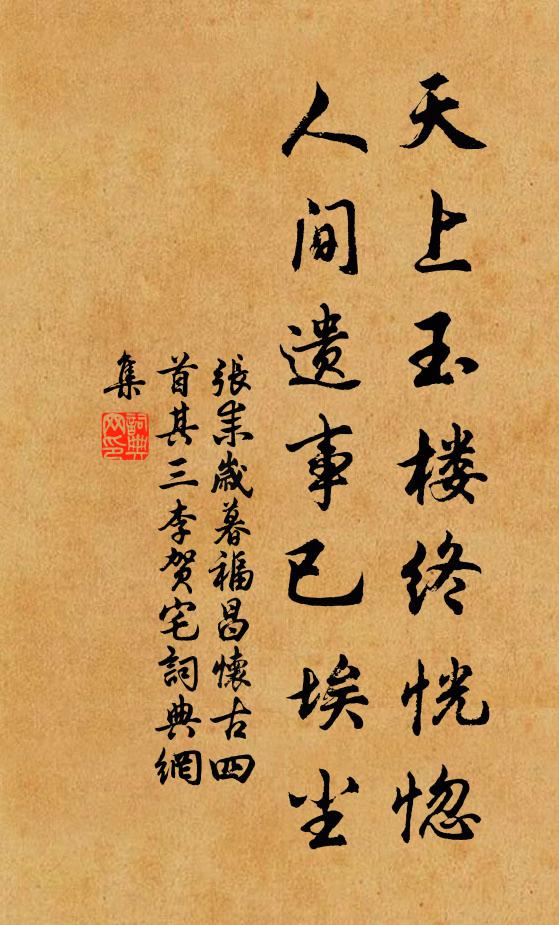 天上玉楼终恍惚
人间遗事已埃尘
張耒歲暮福昌懷古四
首其三李贺宅詞典網
集
詞典网印